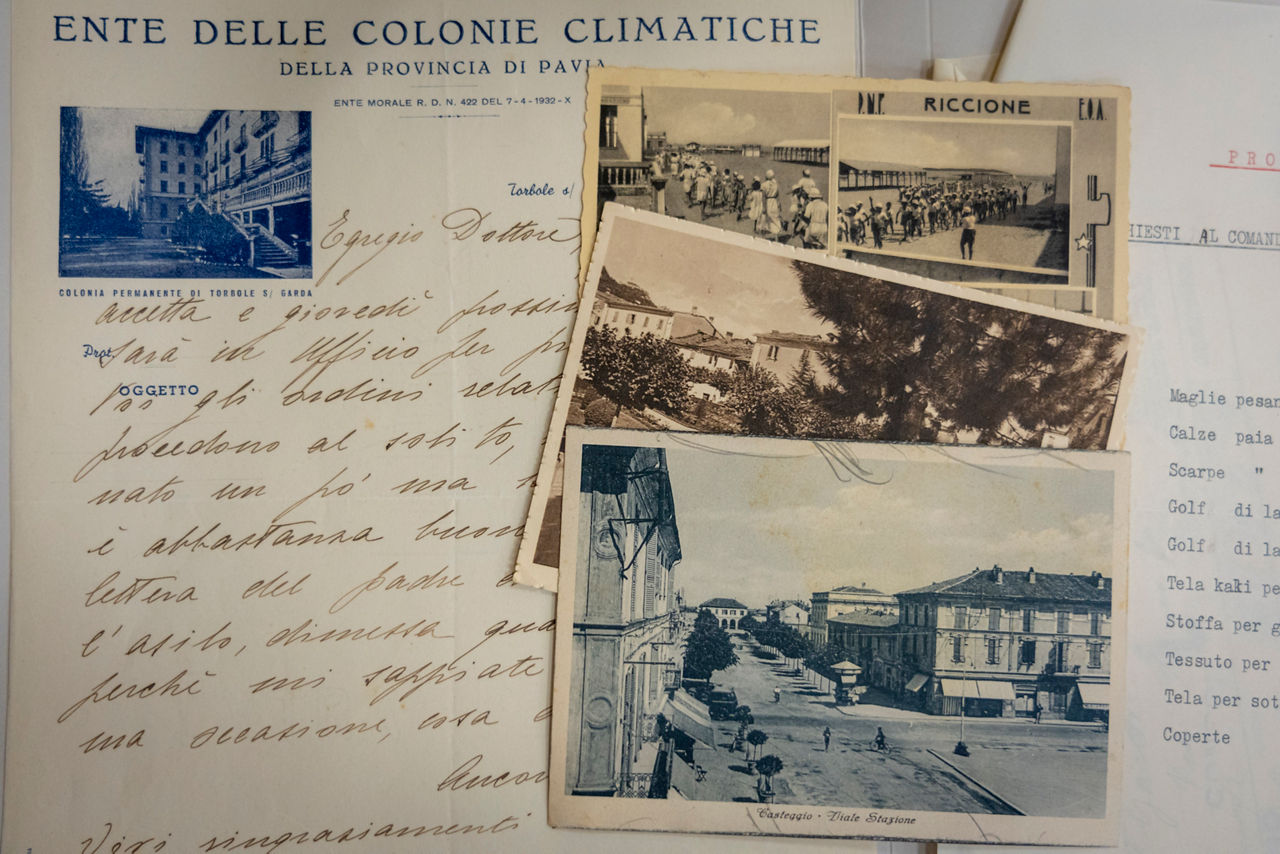 ENTE DELLE COLONIE CLIMATICHE
DELLA PROVINCIA DI PAVIA
ENTE MORALE R. D. N. 422 DEL 7-4-1932-X
COLONIA PERMANENTE DI TORBOLE S/ GARDA
Torbole s/
Egregio Dottore,
accetta e giovedì prossi
Prot.
sarà in Ufficio per pr
OGGETTO
Poi gli ordini relat
procedono al solito,
nato un pó ma
è abbastanza buon
lettera del padre
l'asilo, dimessa qua
perchè mi sappiate
ma occasione, essa
Ancor
Vivi ringraziamenti
P.N.F. RICCIONE E.O.A.
Casteggio - Viale Stazione
PRO
HIESTI AL COMAND
Maglie pesan
Calze paia
Scarpe "
Golf di la
Golf di la
Tela kaki pe
Stoffa per g
Tessuto per
Tela per sot
Coperte